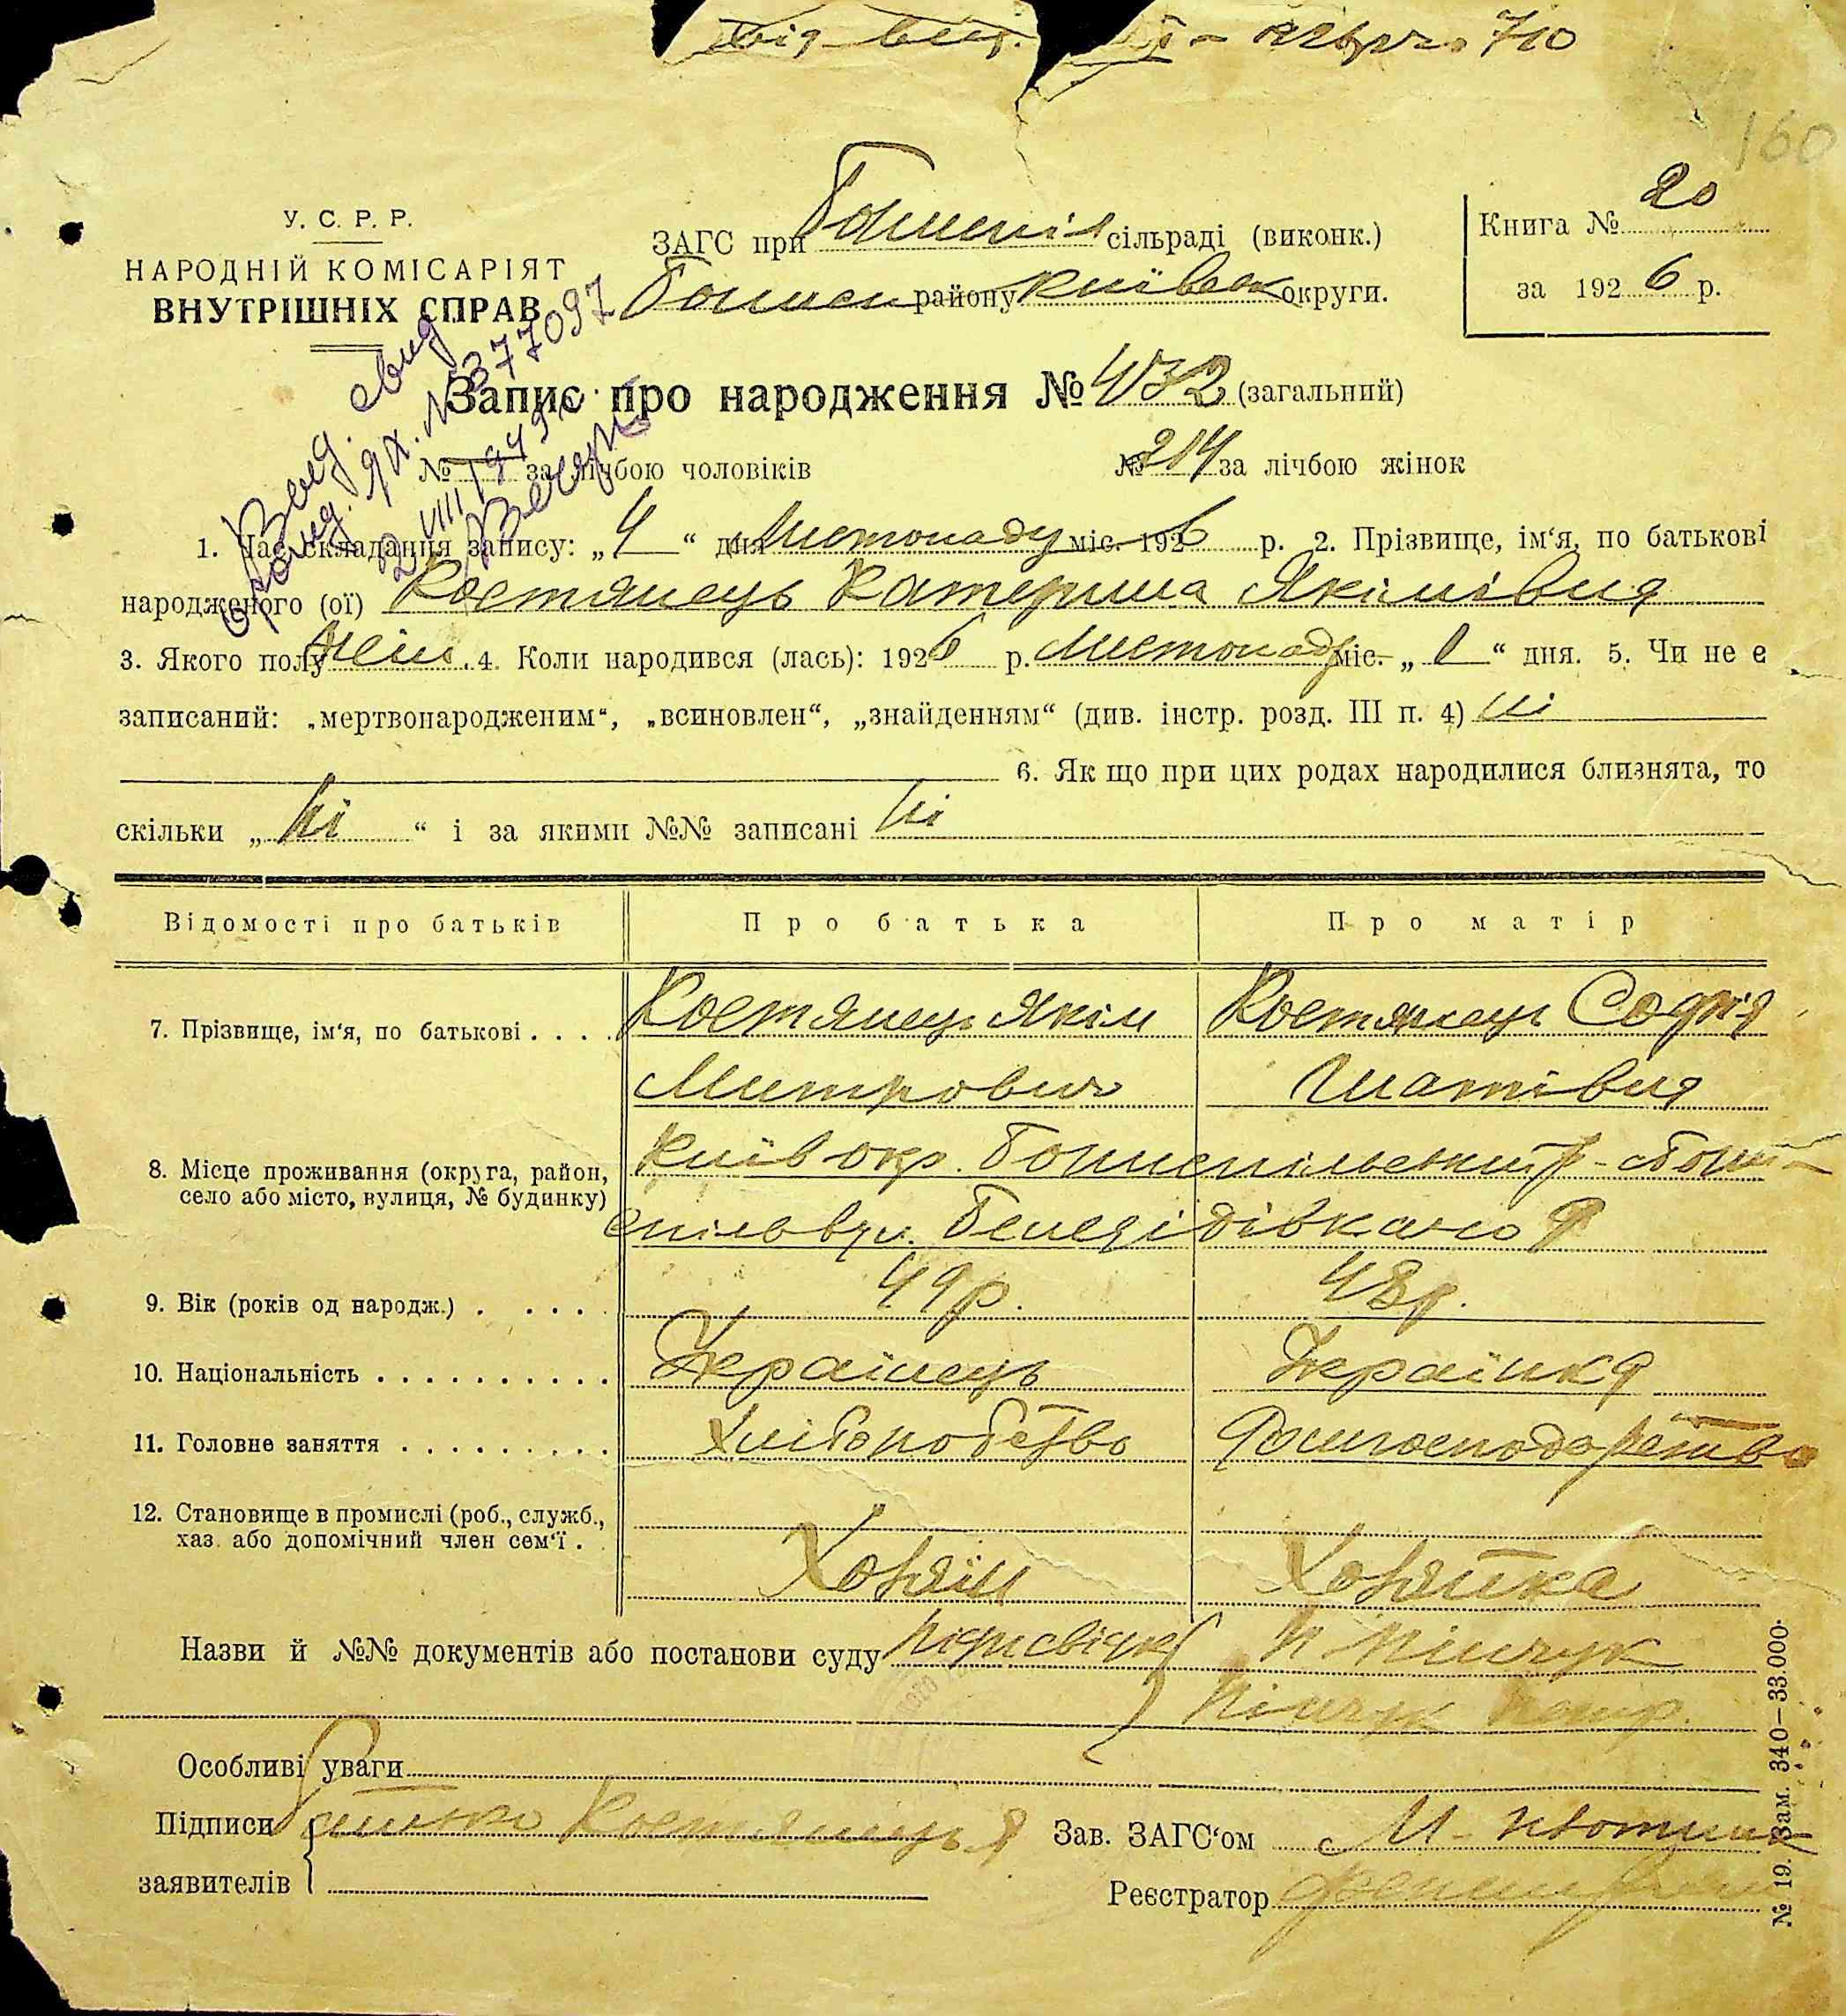 710
160
У. С. Р. Р.
НАРОДНІЙ КОМІСАРІЯТ
ВНУТРІШНІХ СПРАВ
ЗАГС при Бориспіл сільраді (виконк.)
Борисп району Київськ округи.
Книга № 20
за 1926 р.
Запис про народження № 432 (загальний)
№ — за лічбою чоловіків № 214 за лічбою жінок
Вид. свид
№ 377097
2 VIII 194
1. Час складання запису: „4“ дня Листопаду міс. 1926 р. 2. Прізвище, ім‘я, по батькові
народженого (ої) Костянець Катерина Якімівна
3. Якого полу жін. 4. Коли народився (лась): 1926 р. Листопаду міс. „1“ дня. 5. Чи не є
записаний: „мертвонародженим“, „всиновлен“, „знайденням“ (див. інстр. розд. III п. 4) ні
6. Як що при цих родах народилися близнята, то
скільки „ні“ і за якими №№ записані ні
Відомості про батьків Про батька Про матір
7. Прізвище, ім‘я, по батькові . . . . Костянець Якім Костянець Софія
Митрович Гнатівна
8. Місце проживання (округа, район, Київ окр. Бориспільський р. с Бори-
село або місто, вулиця, № будинку) спіль вул.
9. Вік (років од народж.) . . . . . 49р. 48р.
10. Національність . . . . . . . . . . Українець Українка
11. Головне заняття . . . . . . . . . Хліборобство Домгосподарство
12. Становище в промислі (роб., служб.,
хаз. або допомічний член сем‘ї . Хозяїн Хозяйка
Назви й №№ документів або постанови суду
Особливі уваги
Підписи Костянець
заявителів
Зав. ЗАГС‘ом
Реєстратор
№ 19. Зам. 340—33.000.